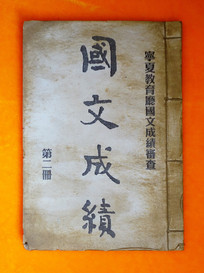 寧夏教育廳國文成績審查
國文成績
第二冊